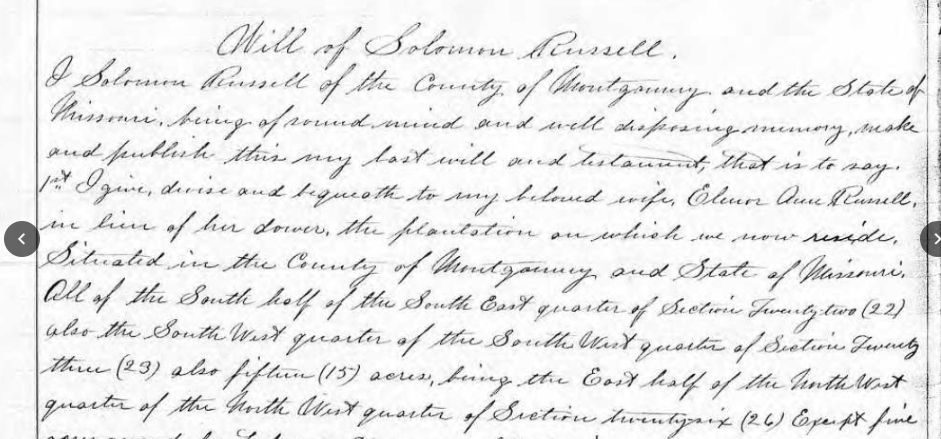 Will of Solomon Russell.
I Solomon Russell of the County of Montgomery and the State of
Missouri, being of sound mind and well disposing memory, make
and publish this my last will and testament, that is to say.
1st I give, devise and bequeath to my beloved wife, Elenor Ann Russell,
in lieu of her dower, the plantation on which we now reside,
Situated in the County of Montgomery and State of Missouri.
All of the South half of the South East quarter of Section Twenty-two (22)
also the South West quarter of the South West quarter of Section Twenty
three (23) also fifteen (15) acres, being the East half of the North West
quarter of the North West quarter of Section twenty six (26) Except five